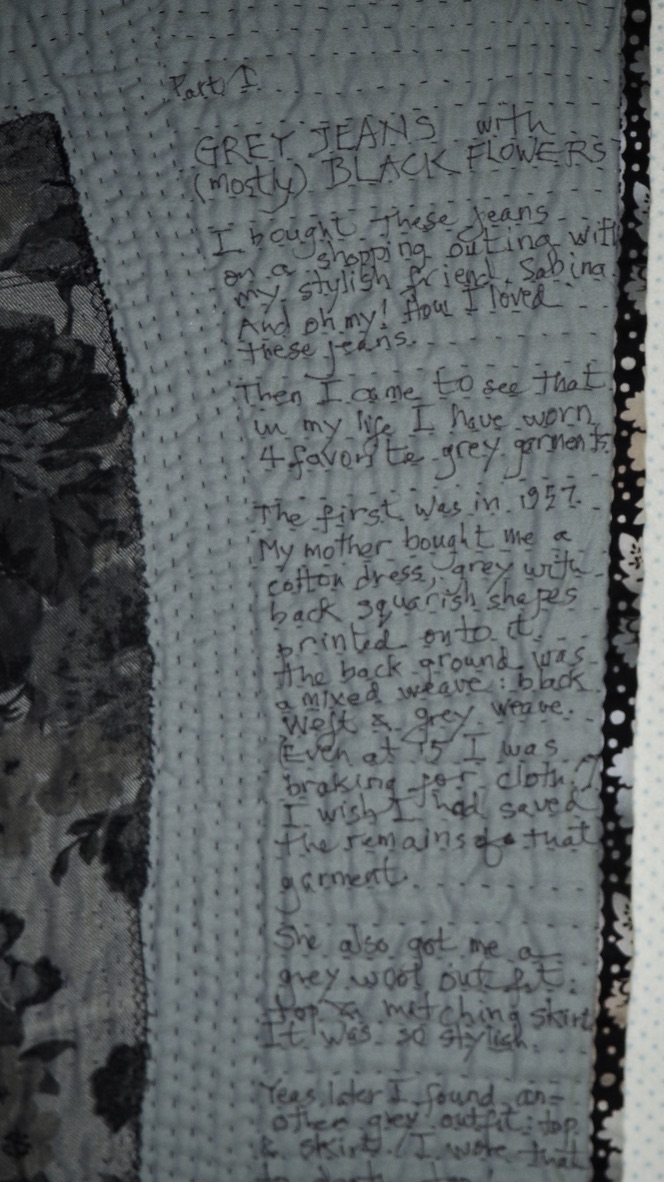 Part I
GREY JEANS with
(mostly) BLACK FLOWERS
I bought these jeans
on a shopping outing with
my stylish friend, Sabina.
And oh my! How I loved
these jeans.
Then I came to see that
in my life I have worn
4 favorite grey garments.
The first was in 1957.
My mother bought me a
cotton dress, grey with
back squarish shapes
printed onto it.
the back ground was
a mixed weave: black
weft & grey weave.
(Even at 15 I was
braking for cloth.)
I wish I had saved
the remains of that
garment.
She also got me a
grey wool outfit:
top & matching skirt
It was so stylish.
Yeas later I found an-
other grey outfit: top
& skirt. I wore that